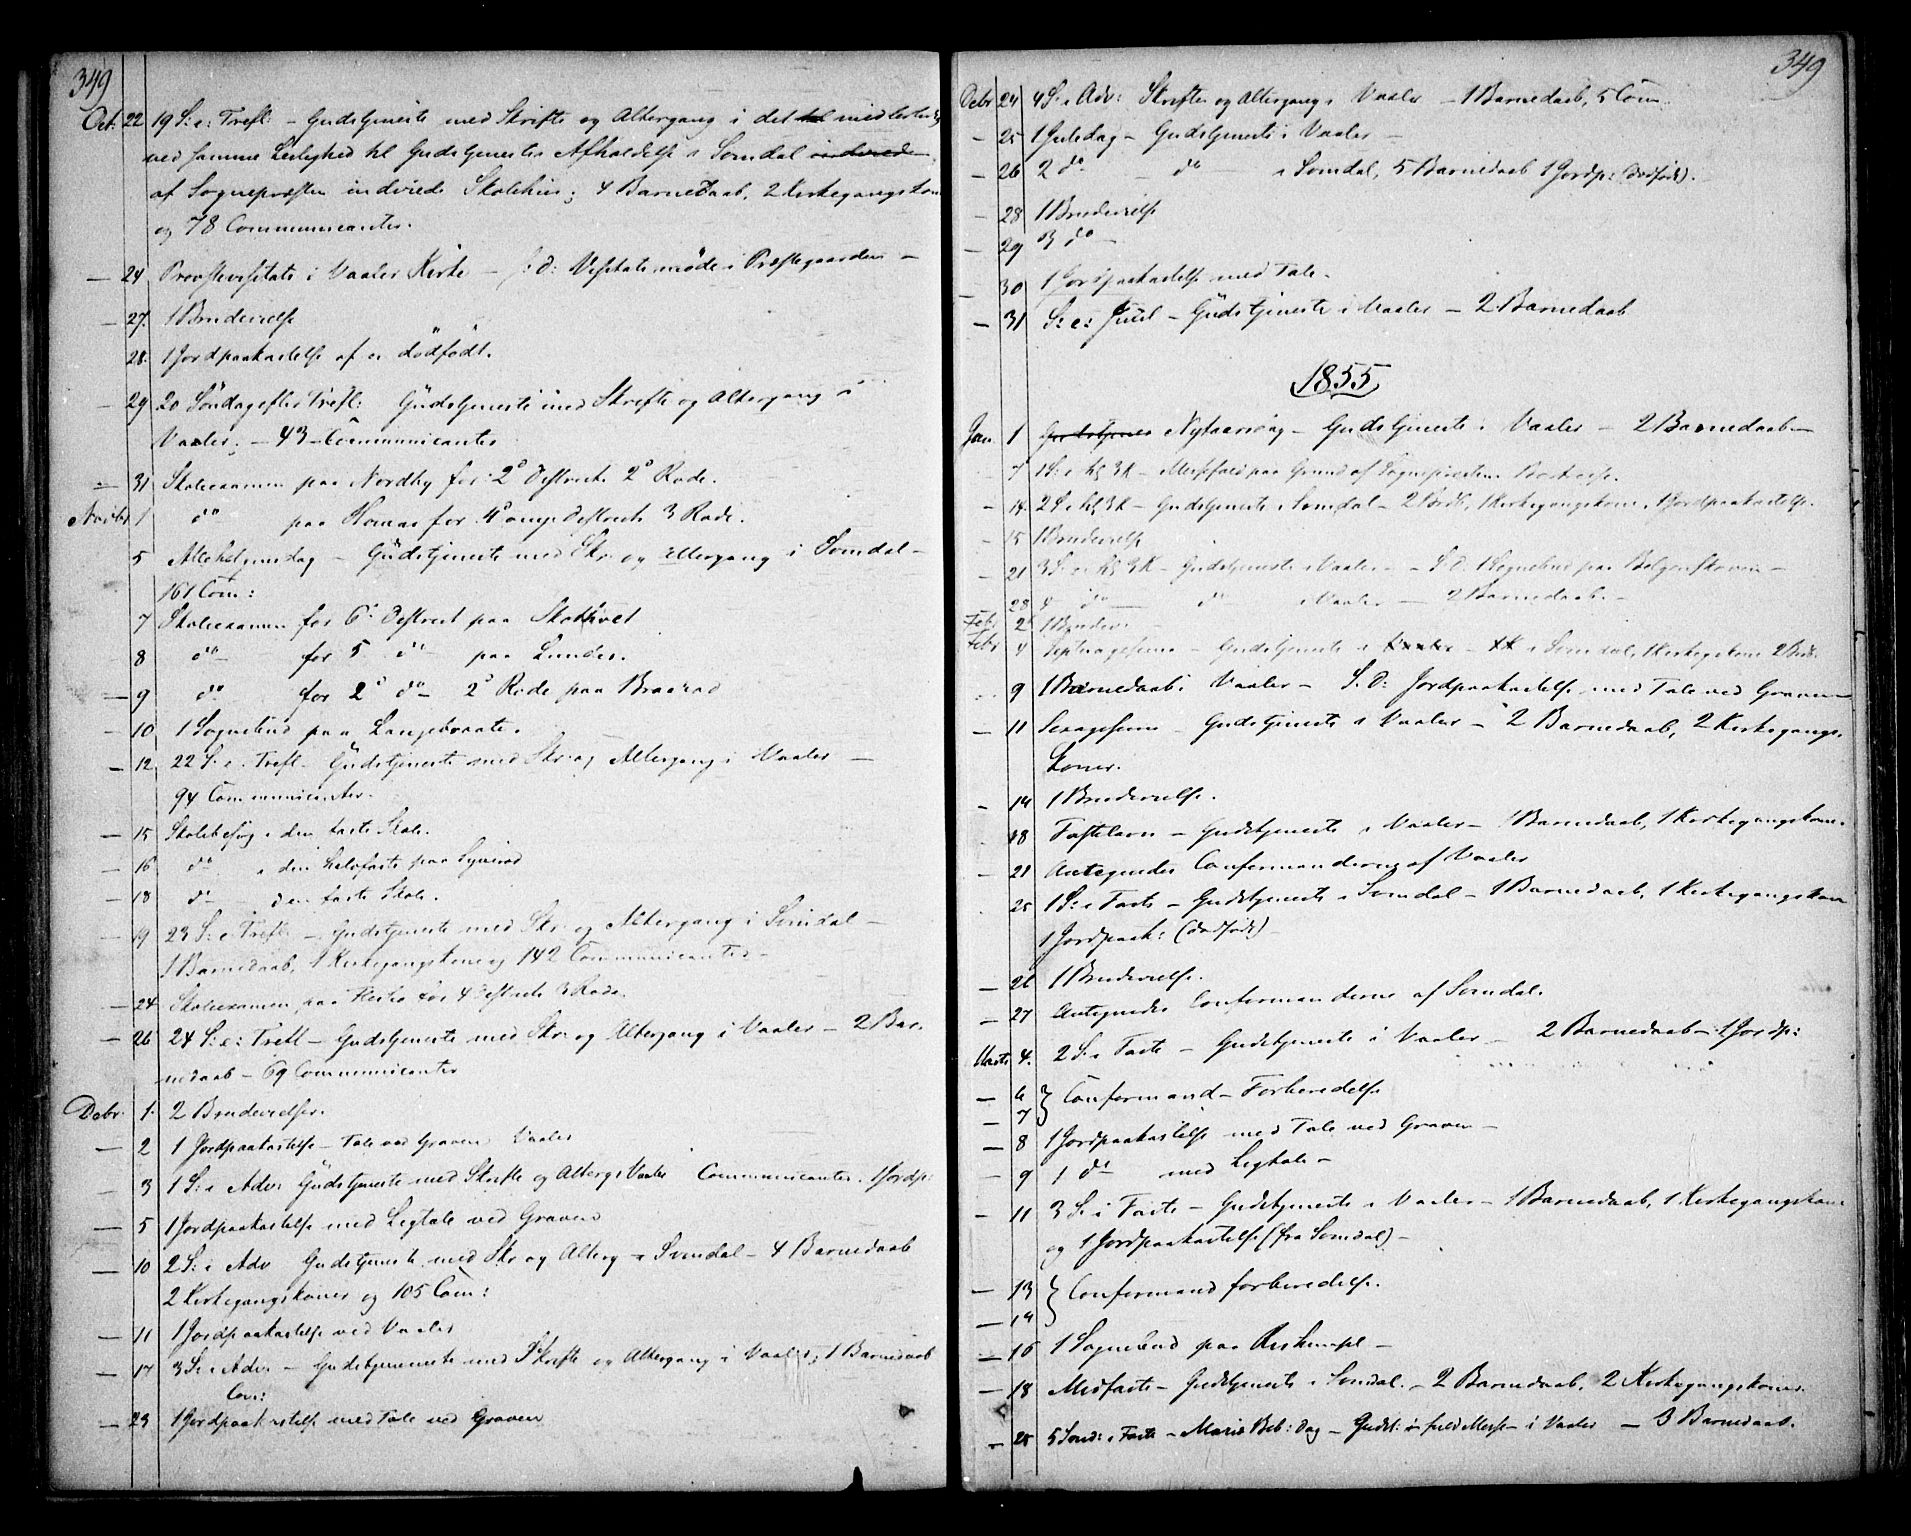 349
Oct: 22 19 S: e: Trefl: – Gudstjeneste med Skrifte og Altergang i det til midlertidig
ved samme Leilighed til Gudstjenestes Afholdelse i Svindal indviede
af Sognepræsten indviede Skolehus; 4 Barnedaab, 2 Kirkegangskon
og 78 Communicanter.
— 24 Provstevisitats i Vaaler Kirke – s: d: Visitatsmøde i Præstegaarden –
— 27. 1 Brudevielse
28. 1 Jordpaakastelse af et dödfödt.
— 29 20 Söndag efter Trefl: Gudstjeneste med Skrifte og Altergang i
Vaaler; – 43 – Communicanter
— 31 Skoleexamen paa Nordby for 2d District 2d Rode.
Novbr 1 do paa for 4d District 3 Rode.
5 Allehelgensdag – Gudstjeneste med Skr: og Altergang i Svindal –
161 Com:
7 Skoleexamen for 6d District paa
8 do – for 5 do – paa Lunder.
— 9 do for 2d do – 2d Rode paa
— 10 1 Sognebud paa Langebraate.
— 12 22 S: e: Trefl – Gudstjeneste med Skr: og Altergang i Vaaler –
94 Communicanter.
— 15 Skolebesög i den faste Skole.
— 16 do i den halvfaste paa
— 18 do i den faste Skole.
— 19 23 S: e: Trefl – Gudstjeneste med Skr: og Altergang i Svindal –
1 Barnedaab, 1 Kirkegangskone og 142 Communicanter –
— 24 Skoleexamen paa for 4 District 3 Rode.
— 26 24 S: e: Trefl – Gudstjeneste med Skr: og Altergang i Vaaler – 2 Bar-
nedaab – 69 Communicanter
Debr. 1. 2 Brudevielser.
— 2 1 Jordpaakastelse – Tale ved Graven Vaaler
3 1 S: i Adv: Gudstjeneste med Skrifte og Alterg i Vaaler Communicanter. 1 Jordp:
— 5 1 Jordpaakastelse med Ligtale ved Graven
— 10 2 S: i Adv Gudstjeneste med Skr og Alterg i Svindal – 4 Barnedaab
2 Kirkegangskoner og 105 Com:
— 11 1 Jordpaakastelse ved Vaaler
— 17 3 S: i Adv – Gudstjeneste med Skrifte og Altergang i Vaaler, 1 Barnedaab
Com:
— 23 1 Jordpaakastelse med Tale ved Graven
349
Debr 24 4 S: i Adv: Skrifte og Altergang i Vaaler – 1 Barnedaab, 5 Com.
— 25 1 Juledag – Gudstjeneste i Vaaler –
— 26 2 do – do – i Svindal, 5 Barnedaab 1 Jordp: (dødfødt).
— 28 1 Brudevielse
— 29 3 do –
— 30 1 Jordpaakastelse med Tale.
— 31 S: e: Juul – Gudstjeneste i Vaaler – 2 Barnedaab
1855
Jan 1 Gudstjenes Nytaarsdag – Gudstjeneste i Vaaler – 2 Barnedaab –
7 1 S: e: H 3 K – Messefald paa Grund af Sognepræstens
– 14. 2 S: e: H 3 K – Gudstjeneste i Svindal – 2 Brdb, 1 Kirkegangskone, 1 Jordpaakastelse.
– 15 1 Brudevielse
– 21 3 S: e: H 3 K – Gudstjeneste i Vaaler – S. D. 1 Sognebud paa
28 4 do – do – i Vaaler – 2 Barnedaab. –
Febr 2 1 Brudev.
Febr 4 Septuagesima – Gudstjeneste i Vaaler – i Svindal, 1 Kirkegskone 2 Brdb.
9 1 Barnedaab i Vaaler – S. D: Jordpaakastelse med Tale ved Graven –
— 11 Sexagesima – Gudstjeneste i Vaaler – 2 Barnedaab, 2 Kirkegangs-
koner.
– 14 1 Brudevielse.
18 Fastelavn – Gudstjeneste i Vaaler – 1 Barnedaab, 1 Kirkegangskone.
– 21 Antegnedes Confirmanderne af Vaaler
25 1 S: i Faste – Gudstjeneste i Svindal – 1 Barnedaab, 1 Kirkegangskone
1 Jordpaak: (dødfødt) –
— 26 1 Brudevielse.
— 27 Antegnedes Confirmanderne af Svindal.
Marts 4. 2 S: i Faste – Gudstjeneste i Vaaler – 2 Barnedaab – 1 Jordp:
— 6 } Confirmand – Forberedelse
— 7
— 8 1 Jordpaakastelse med Tale ved Graven –
— 9 1 do med Ligtale –
— 11 3 S: i Faste – Gudstjeneste i Vaaler – 1 Barnedaab, 1 Kirkegangskone
og 1 Jordpaakastelse (fra Svindal) –
— 13 } Confirmand forberedelse.
— 14
— 16 1 Sognebud paa –
— 18 Midfaste – Gudstjeneste i Svindal. – 2 Barnedaab, 2 Kirkegangskoner.
— 25 5 Sønd: i Faste – Mariæ Beb: dag – Gudst: fuld Messe – i Vaaler – 3 Barnedaab.